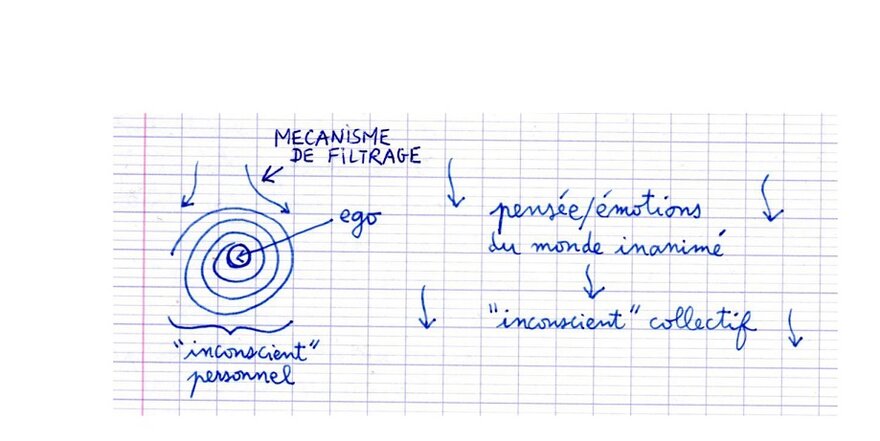 MECANISME
DE FILTRAGE
ego
pensée/émotions
du monde inanimé
"inconscient" collectif
"inconscient"
personnel